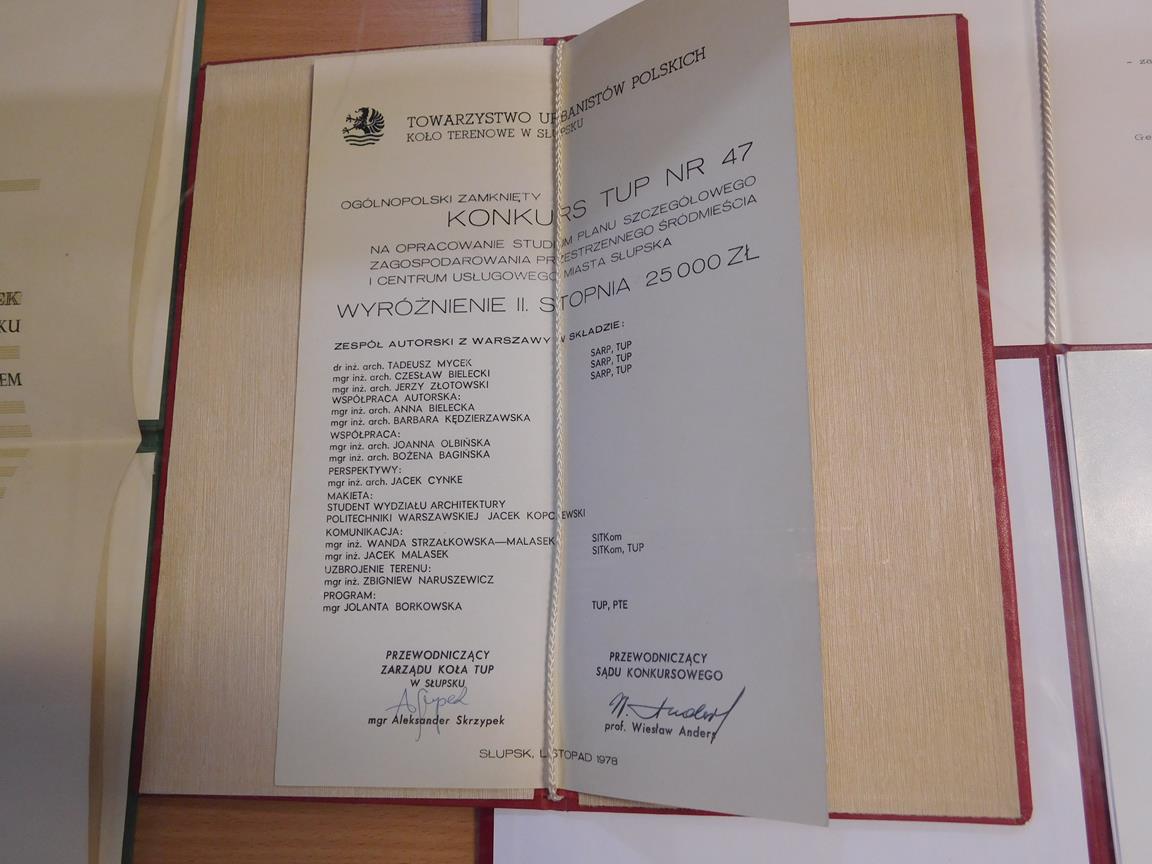 TOWARZYSTWO URBANISTÓW POLSKICH
KOŁO TERENOWE W SŁUPSKU
OGÓLNOPOLSKI ZAMKNIĘTY
KONKURS TUP NR 47
NA OPRACOWANIE STUDIUM PLANU SZCZEGÓŁOWEGO
ZAGOSPODAROWANIA PRZESTRZENNEGO ŚRÓDMIEŚCIA
I CENTRUM USŁUGOWEGO MIASTA SŁUPSKA
WYRÓŻNIENIE II. STOPNIA 25 000 ZŁ
ZESPÓŁ AUTORSKI Z WARSZAWY W SKŁADZIE:
dr inż. arch. TADEUSZ MYCEK SARP, TUP
mgr inż. arch. CZESŁAW BIELECKI SARP, TUP
mgr inż. arch. JERZY ZŁOTOWSKI SARP, TUP
WSPÓŁPRACA AUTORSKA:
mgr inż. arch. ANNA BIELECKA
mgr inż. arch. BARBARA KĘDZIERZAWSKA
WSPÓŁPRACA:
mgr inż. arch. JOANNA OLBIŃSKA
mgr inż. arch. BOŻENA BAGIŃSKA
PERSPEKTYWY:
mgr inż. arch. JACEK CYNKE
MAKIETA:
STUDENT WYDZIAŁU ARCHITEKTURY
POLITECHNIKI WARSZAWSKIEJ JACEK
KOMUNIKACJA:
mgr inż. WANDA STRZAŁKOWSKA—MALASEK SITKom
mgr inż. JACEK MALASEK SITKom, TUP
UZBROJENIE TERENU:
mgr inż. ZBIGNIEW NARUSZEWICZ
PROGRAM:
mgr JOLANTA BORKOWSKA TUP, PTE
PRZEWODNICZĄCY
ZARZĄDU KOŁA TUP
W SŁUPSKU
mgr Aleksander Skrzypek
PRZEWODNICZĄCY
SĄDU KONKURSOWEGO
prof. Wiesław Anders
SŁUPSK, LISTOPAD 1978
EK
KU
EM
- za
Ge